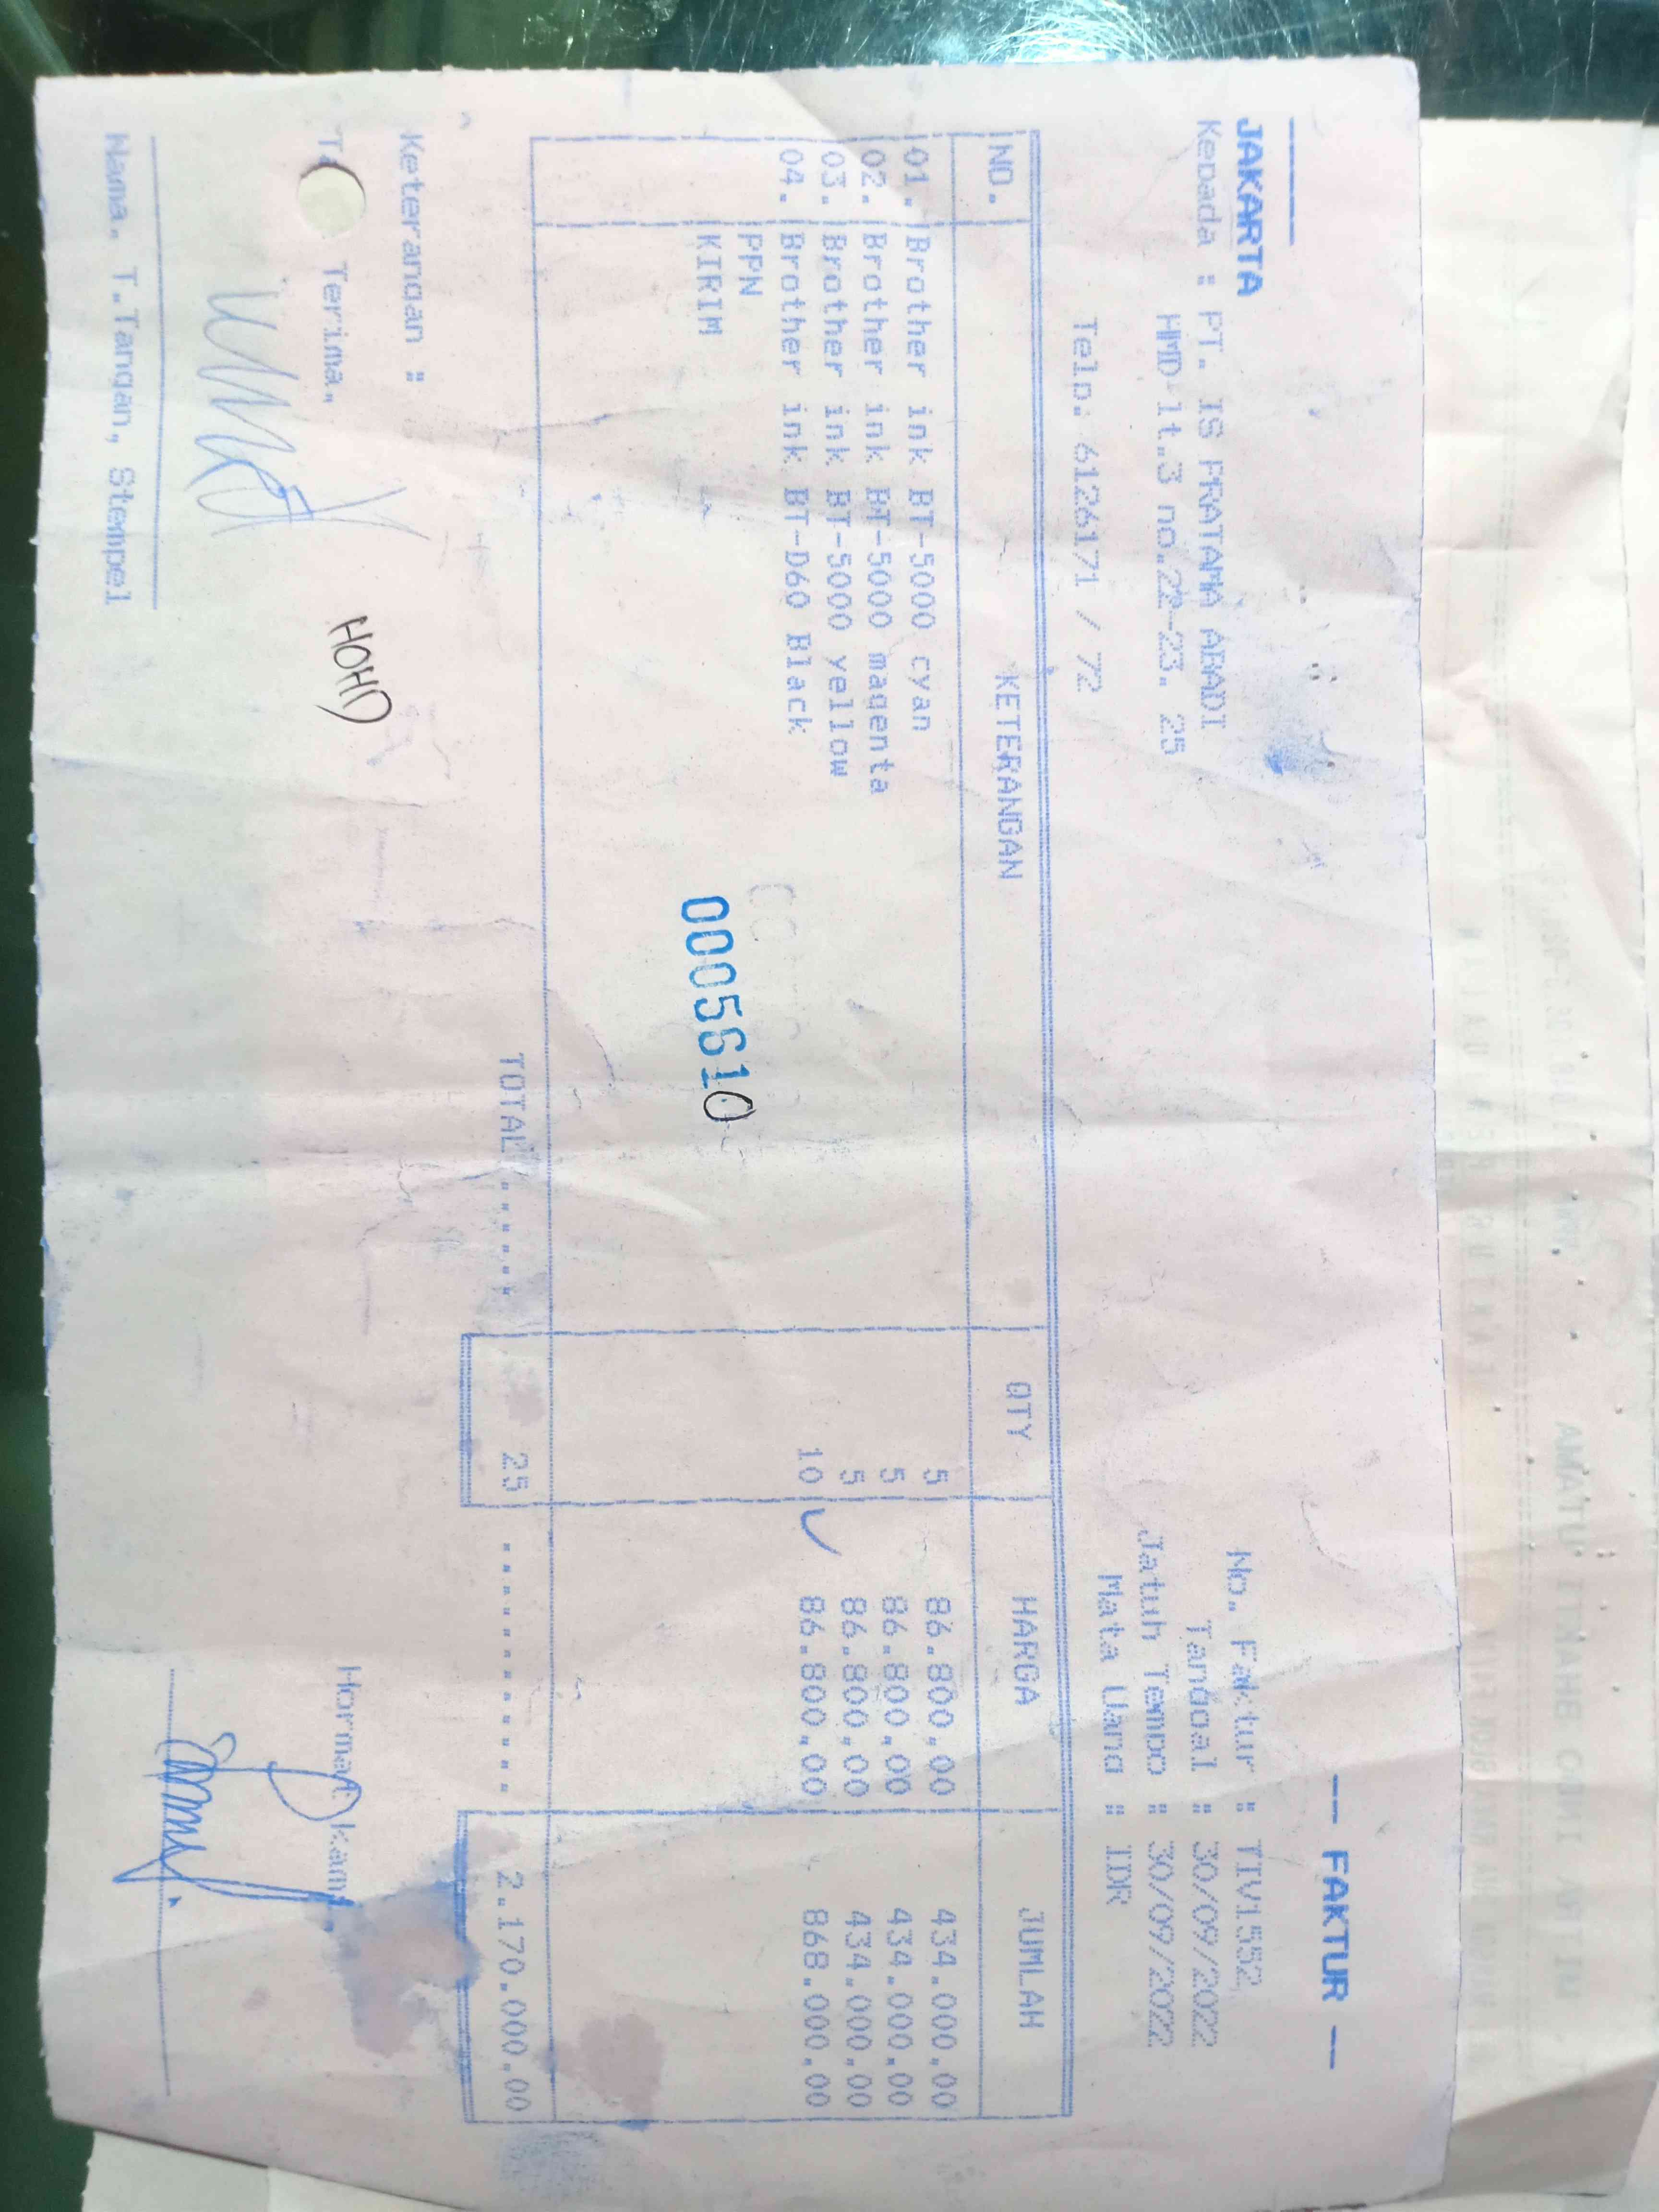 -- FAKTUR --
JAKARTA
Kepada : PT. IS PRATAMA ABADI
HMD lt.3 no.22-23. 25
Telp: 6126171 / 72
No. Faktur : TIV1552
Tanggal : 30/09/2022
Jatuh Tempo : 30/09/2022
Mata Uang : IDR
NO. KETERANGAN QTY HARGA JUMLAH
01. Brother ink BT-5000 cyan 5 86.800,00 434.000,00
02. Brother ink BT-5000 magenta 5 86.800,00 434.000,00
03. Brother ink BT-5000 yellow 5 86.800,00 434.000,00
04. Brother ink BT-D60 Black 10 86.800,00 868.000,00
PPN
KIRIM
0005610
TOTAL ...... 25 ............. 2.170.000,00
Keterangan :
Terima.
HONG
Hormat kami,
Nama. T.Tangan, Stempel